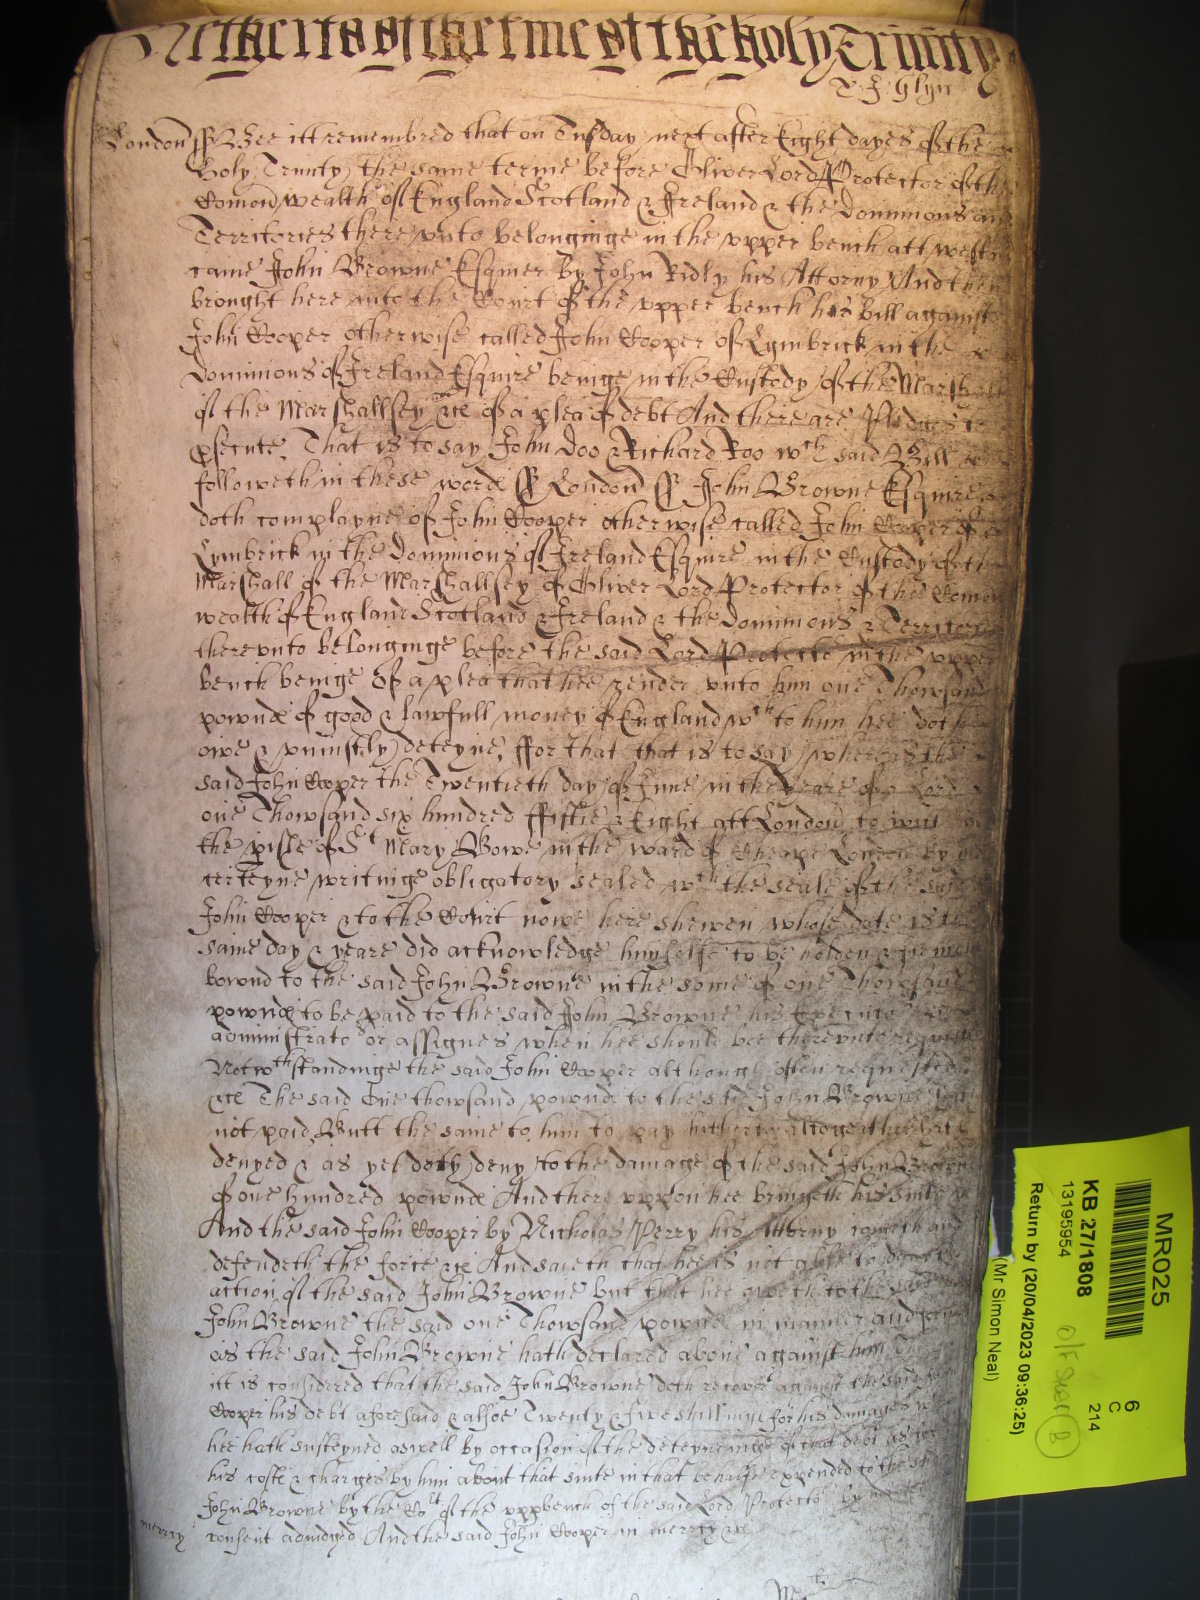 Yet the certa of the time of the holy Trinity
J: Glyn
London ss Bee itt remembred that on Tusday next after Eight dayes of the
Holy Trinity the same terme before Oliver Lord Protector of the
Comonwealth of England Scotland & Ireland & the Dominions and
Territories thereunto belonginge in the upper bench att
came John Browne Esquier by John Ridly his Attorny And then
brought here into the Court of the upper bench his bill against
John Cooper otherwise called John Cooper of Lymbrick in the
dominions of Ireland Esquire beinge in the Custody of the Marshall
of the Marshallsey &c of a plea of debt And there are Pledges to
psecute, That is to say John Doo & Richard Roo wch said Bill
followeth in these words ss London ss John Browne Esquire
doth complayne of John Cooper otherwise called John Cooper of
Lymbrick in the Dominions of Ireland Esquire in the Custody of the
Marshall of the Marshallsey of Oliver Lord Protector of the Comon
wealth of England Scotland & Ireland & the dominions & Territories
thereunto belonginge before the said Lord Protector in the upper
bench beinge Of a plea that hee render unto him one Thowsand
pownds of good & lawfull money of England wch to him hee doth
owe & uniustly deteyne, ffor that that is to say whereas the
said John Cooper the Twentieth day of June in the yeare of Lord
one Thowsand six hundred ffiftie & Eight att London to witt
the pish of St Mary Bowe in the ward of Cheape London by
certeyne writinge obligatory sealed wth the seale of the said
John Cooper & to the Court nowe here shewen whose date is the
same day & yeare did acknowledge himselfe to be holden & firmely
bownd to the said John Browne in the some of one Thowsand
pownds to be paid to the said John Browne his Executors
administrators or assignes when hee should bee thereunto required
Notwthstandinge the said John Cooper although often requested
&c The said One thowsand pownds to the said John Browne hath
not paid Butt the same to him to pay hitherto altogeather hath
denyed & as yet doth deny to the damage of the said John Browne
of one hundred pownds And thereuppon hee bringeth his suite
And the said John Cooper by Nicholas Perry his Attorny cometh and
defendeth the force &c And saieth that hee is not able to deny the
action of the said John Browne but that hee oweth to the said
John Browne the said one Thowsand pownds in manner and forme
as the said John Browne hath declared above against him
itt is considered that the said John Browne doth recover against the said John
Cooper his debt aforesaid & alsoe Twenty & five shillings for his damages wch
hee hath susteyned aswell by occasion of the deteyneinge of that debt as for
his costs & charges by him about that suite in that behalfe expended to the said
John Browne by the Cort of the uppbench of the said Lord Protector by
consent adiudged And the said John Cooper in mercy &c
mercy
MR025
6
C
214
KB 27/1808
13195954
Return by (20/04/2023 09:36:25)
(Mr Simon Neal)
B